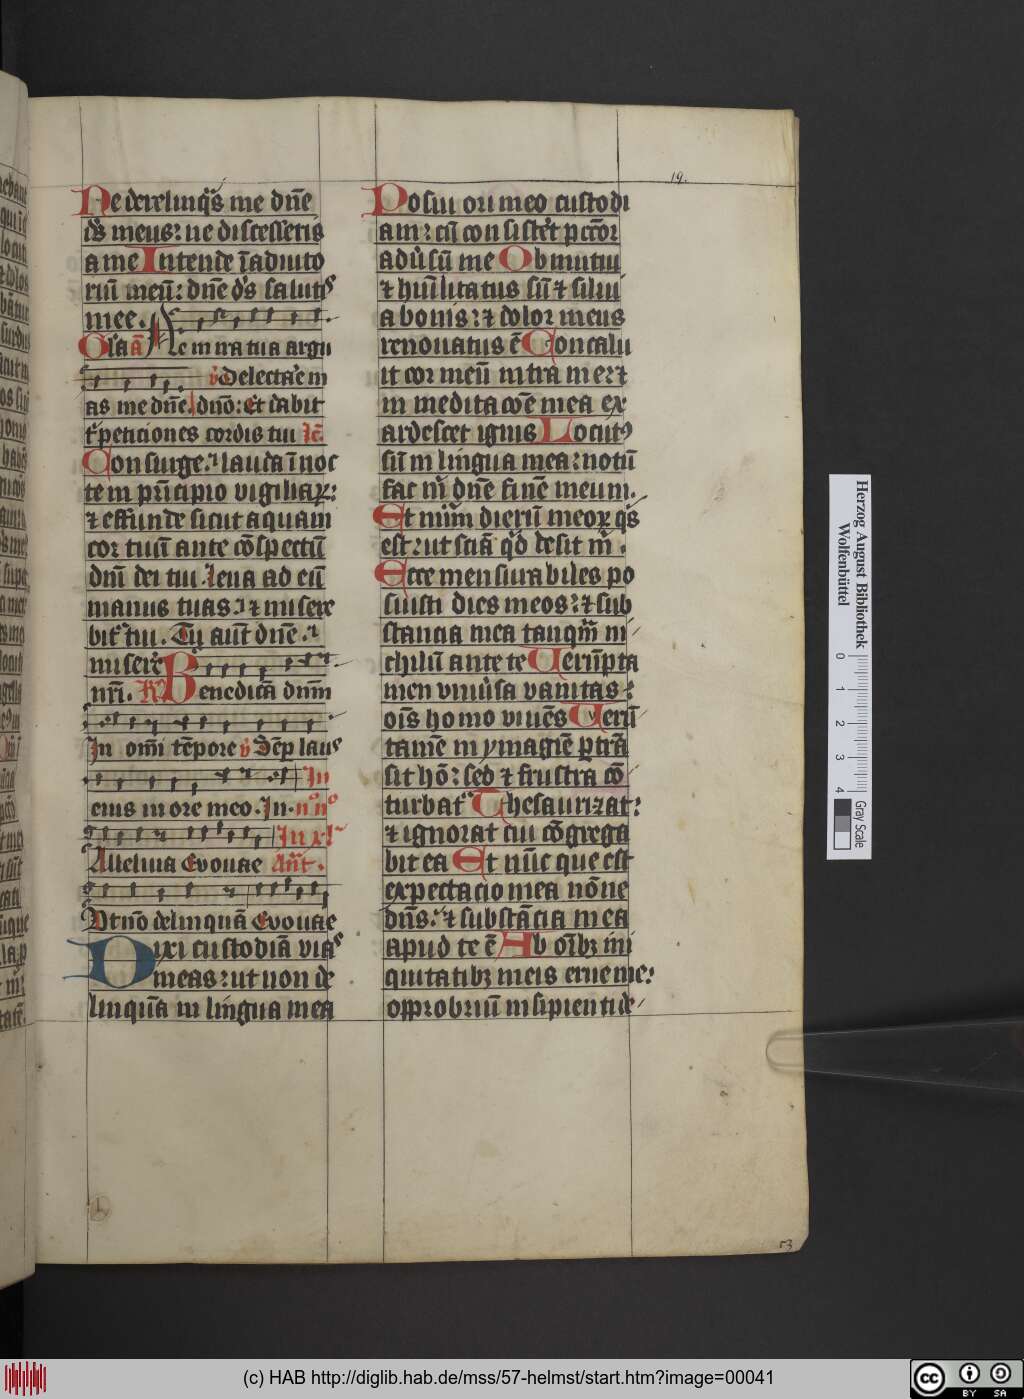 19.
Ne derelinqͣs me dn̄e
ds̄ meus: ne discesseris
a me Intende ī adiuto
riū meū: dn̄e ds̄ salutꝭ
mee.
Gl'a a Ne in ira tua argu
v Delectar̄e in
as me dn̄e dn̄o: Et dabit
t' peticiones cordis tui
Consurge: lauda ī noc
te in pn̄cipio vigiliaꝝ:
⁊ effunde sicut aquam
cor tuū ante cōspectū
dn̄i dei tui. leua ad eū
manus tuas: ⁊ misere
bit' tui. Tu aūt dn̄e:
miserer̄e
nr̄i. R Benedicā dn̄m
In om̄i tēpore v Sēp laus
In
eius in ore meo. In.
In xl
Alleluia Evovae Ant.
Vt nō delinquā Evovae
Dixi custodiā vias
meas: ut non de
linquā in lingua mea
Posui ori meo custodi
am: cū consistet pctōr
adūsū me Obmutui
⁊ hūilitatus sū ⁊ silui
a bonis: ⁊ dolor meus
renouatus ē Concalu
it cor meū intra me: ⁊
in meditacōe mea ex
ardescet ignis Locutꝰ
sū in lingua mea: notū
fac m̄ dn̄e finē meum.
Et num̄ dierū meoꝝ qͣs
est: ut sciā qͥd desit m̄.
Ecce mensurabiles po
suisti dies meos: ⁊ sub
stancia mea tanqm̄ ni
chilū ante te Uerūpta
men vniūsa vanitas:
oīs homo viuēs Uerū
tamē in ymagīe ꝑtrā
sit hō: sed ⁊ frustra cō
turbat' Thesaurizat:
⁊ ignorat cui cōgrega
bit ea Et nūc que est
expectacio mea nōne
dn̄s: ⁊ substācia mea
apud te ē Ab oībꝫ ini
quitatibꝫ meis erue me:
opprobriū insipienti de
53
Herzog August Bibliothek
Wolfenbüttel
0 1 2 3 4
Gray Scale
(c) HAB http://diglib.hab.de/mss/57-helmst/start.htm?image=00041
cc BY SA